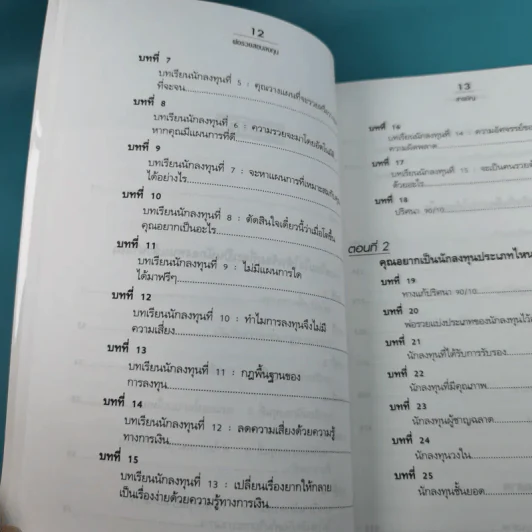 12
พ่อรวยสอนลงทุน
บทที่ 7
บทเรียนนักลงทุนที่ 5 : คุณวางแผนที่จะรวยหรือวาง
ที่จะจน
บทที่ 8
บทเรียนนักลงทุนที่ 6 : ความรวยจะมาโดยอัตโนมัติ
หากคุณมีแผนการที่ดี
บทที่ 9
บทเรียนนักลงทุนที่ 7 : จะหาแผนการที่เหมาะสมกับ
ได้อย่างไร
บทที่ 10
บทเรียนนักลงทุนที่ 8 : ตัดสินใจเดี๋ยวนี้ว่าเมื่อโตขึ้น
คุณอยากเป็นอะไร
บทที่ 11
บทเรียนนักลงทุนที่ 9 : ไม่มีแผนการใด
ได้มาฟรีๆ
บทที่ 12
บทเรียนนักลงทุนที่ 10 : ทำไมการลงทุนจึงไม่มี
ความเสี่ยง
บทที่ 13
บทเรียนนักลงทุนที่ 11 : กฎพื้นฐานของ
การลงทุน
บทที่ 14
บทเรียนนักลงทุนที่ 12 : ลดความเสี่ยงด้วยความรู้
ทางการเงิน
บทที่ 15
บทเรียนนักลงทุนที่ 13 : เปลี่ยนเรื่องยากให้กลาย
เป็นเรื่องง่ายด้วยความรู้ทางการเงิน
13
สารบัญ
บทที่ 16
บทเรียนนักลงทุนที่ 14 : ความมหัศจรรย์ของ
ความผิดพลาด
บทที่ 17
บทเรียนนักลงทุนที่ 15 : จะเป็นคนรวยด้
ด้วยอะไร
บทที่ 18
ปริศนา 90/10
ตอนที่ 2
คุณอยากเป็นนักลงทุนประเภทไหน
บทที่ 19
ทางแก้ปริศนา 90/10
บทที่ 20
พ่อรวยแบ่งประเภทของนักลงทุนไว้
บทที่ 21
นักลงทุนที่ได้รับการรับรอง
บทที่ 22
นักลงทุนที่มีคุณภาพ
บทที่ 23
นักลงทุนผู้ชาญฉลาด
บทที่ 24
นักลงทุนวงใน
บทที่ 25
นักลงทุนชั้นยอด